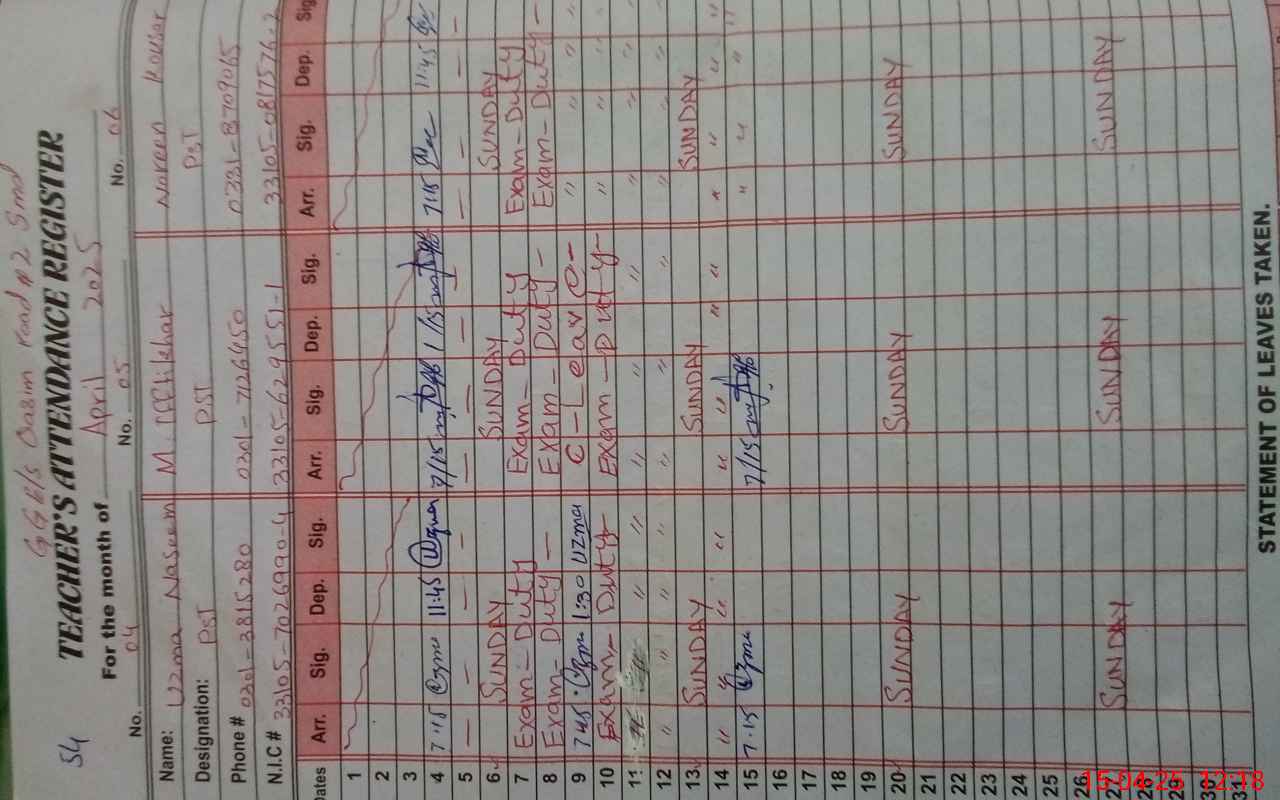 54
TEACHER'S ATTENDANCE REGISTER
For the month of April 2025
No. 04 No. 05 No. 06
Name: Uzma Naseem M. Iftikhar Noreen Kousar
Designation: PST PST PST
Phone # 0301-3815280 0301-7126450 0331-8709065
N.I.C # 33105-7026990-4 33105-6295551-1
Dates Arr. Sig. Dep. Sig. Arr. Sig. Dep. Sig. Arr. Sig. Dep. Sig.
1
2
3
4 7.15 11:45 7/15 7:15 11:45
5 — — — — — — — — — — — —
6 SUNDAY SUNDAY SUNDAY
7 Exam-Duty Exam-Duty Exam-Duty
8 Exam-Duty- Exam-Duty- Exam-Duty-
9 745 1:30 Uzma C-Leave- " " " "
10 Exam-Duty- Exam-Duty- " " " "
11 " " " " " " " " " "
12 " " " " " " " " " " " "
13 SUNDAY SUNDAY SUNDAY
14 " " " " " " " " " " " "
15 7.15 7/15 " " " "
16
17
18
19
20 SUNDAY SUNDAY SUNDAY
21
22
23
24
25
26
27 SUNDAY SUNDAY SUNDAY
28
29
30
31
STATEMENT OF LEAVES TAKEN.
15-04-25 12:18